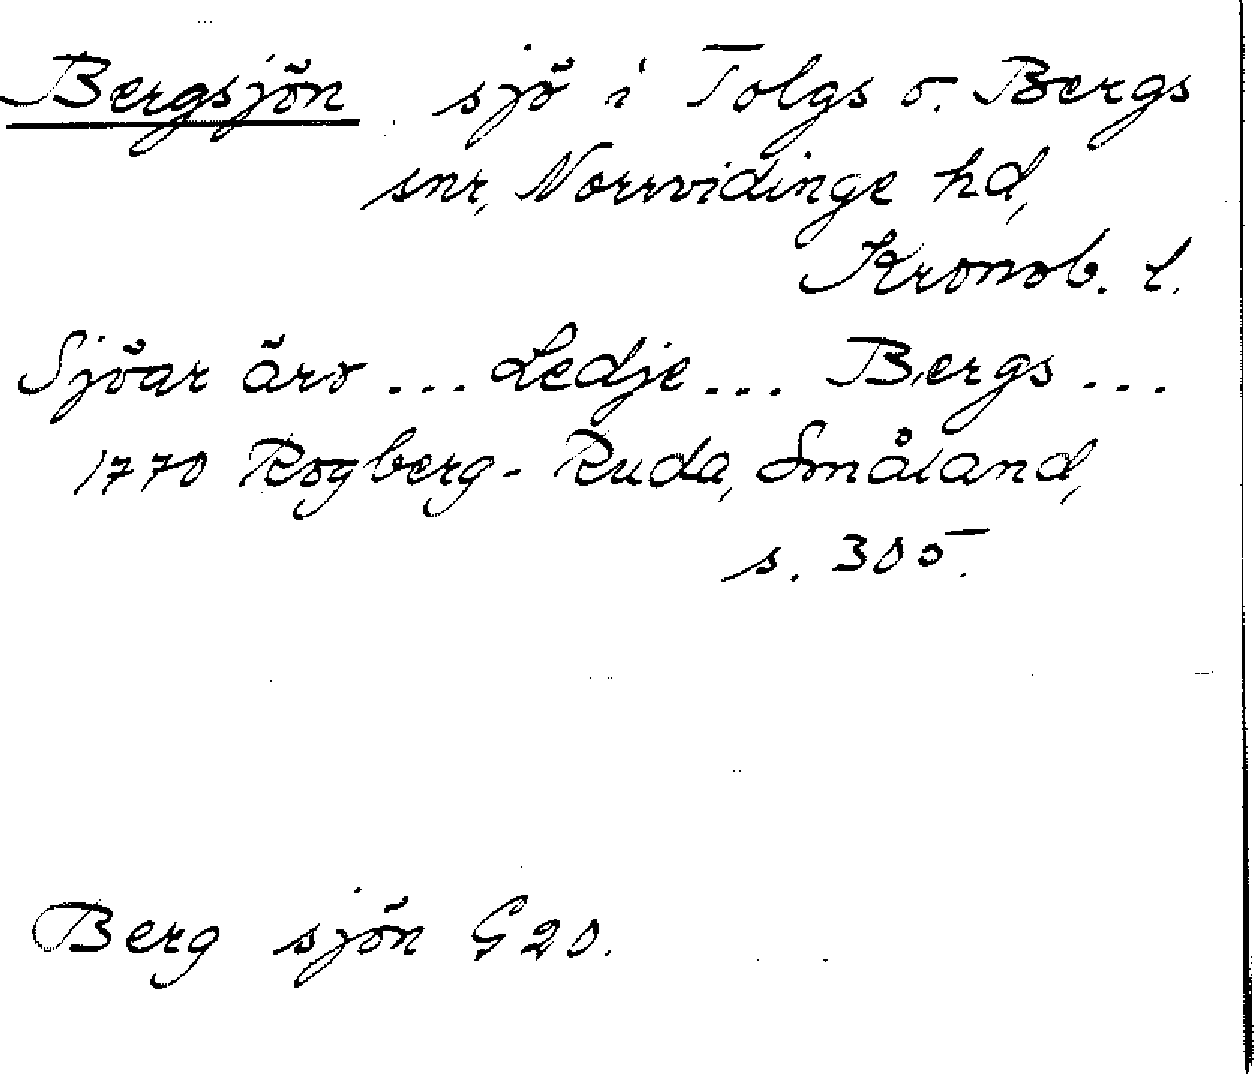 Bergsjön sjö i Tolgs o. Bergs
snr, Norrvidinge hd,
Kronob. l.
Sjöar äro ... Ledje ... Bergs ...
1770 Rogberg - Ruda, Småland,
s. 305.
Berg sjön G20.